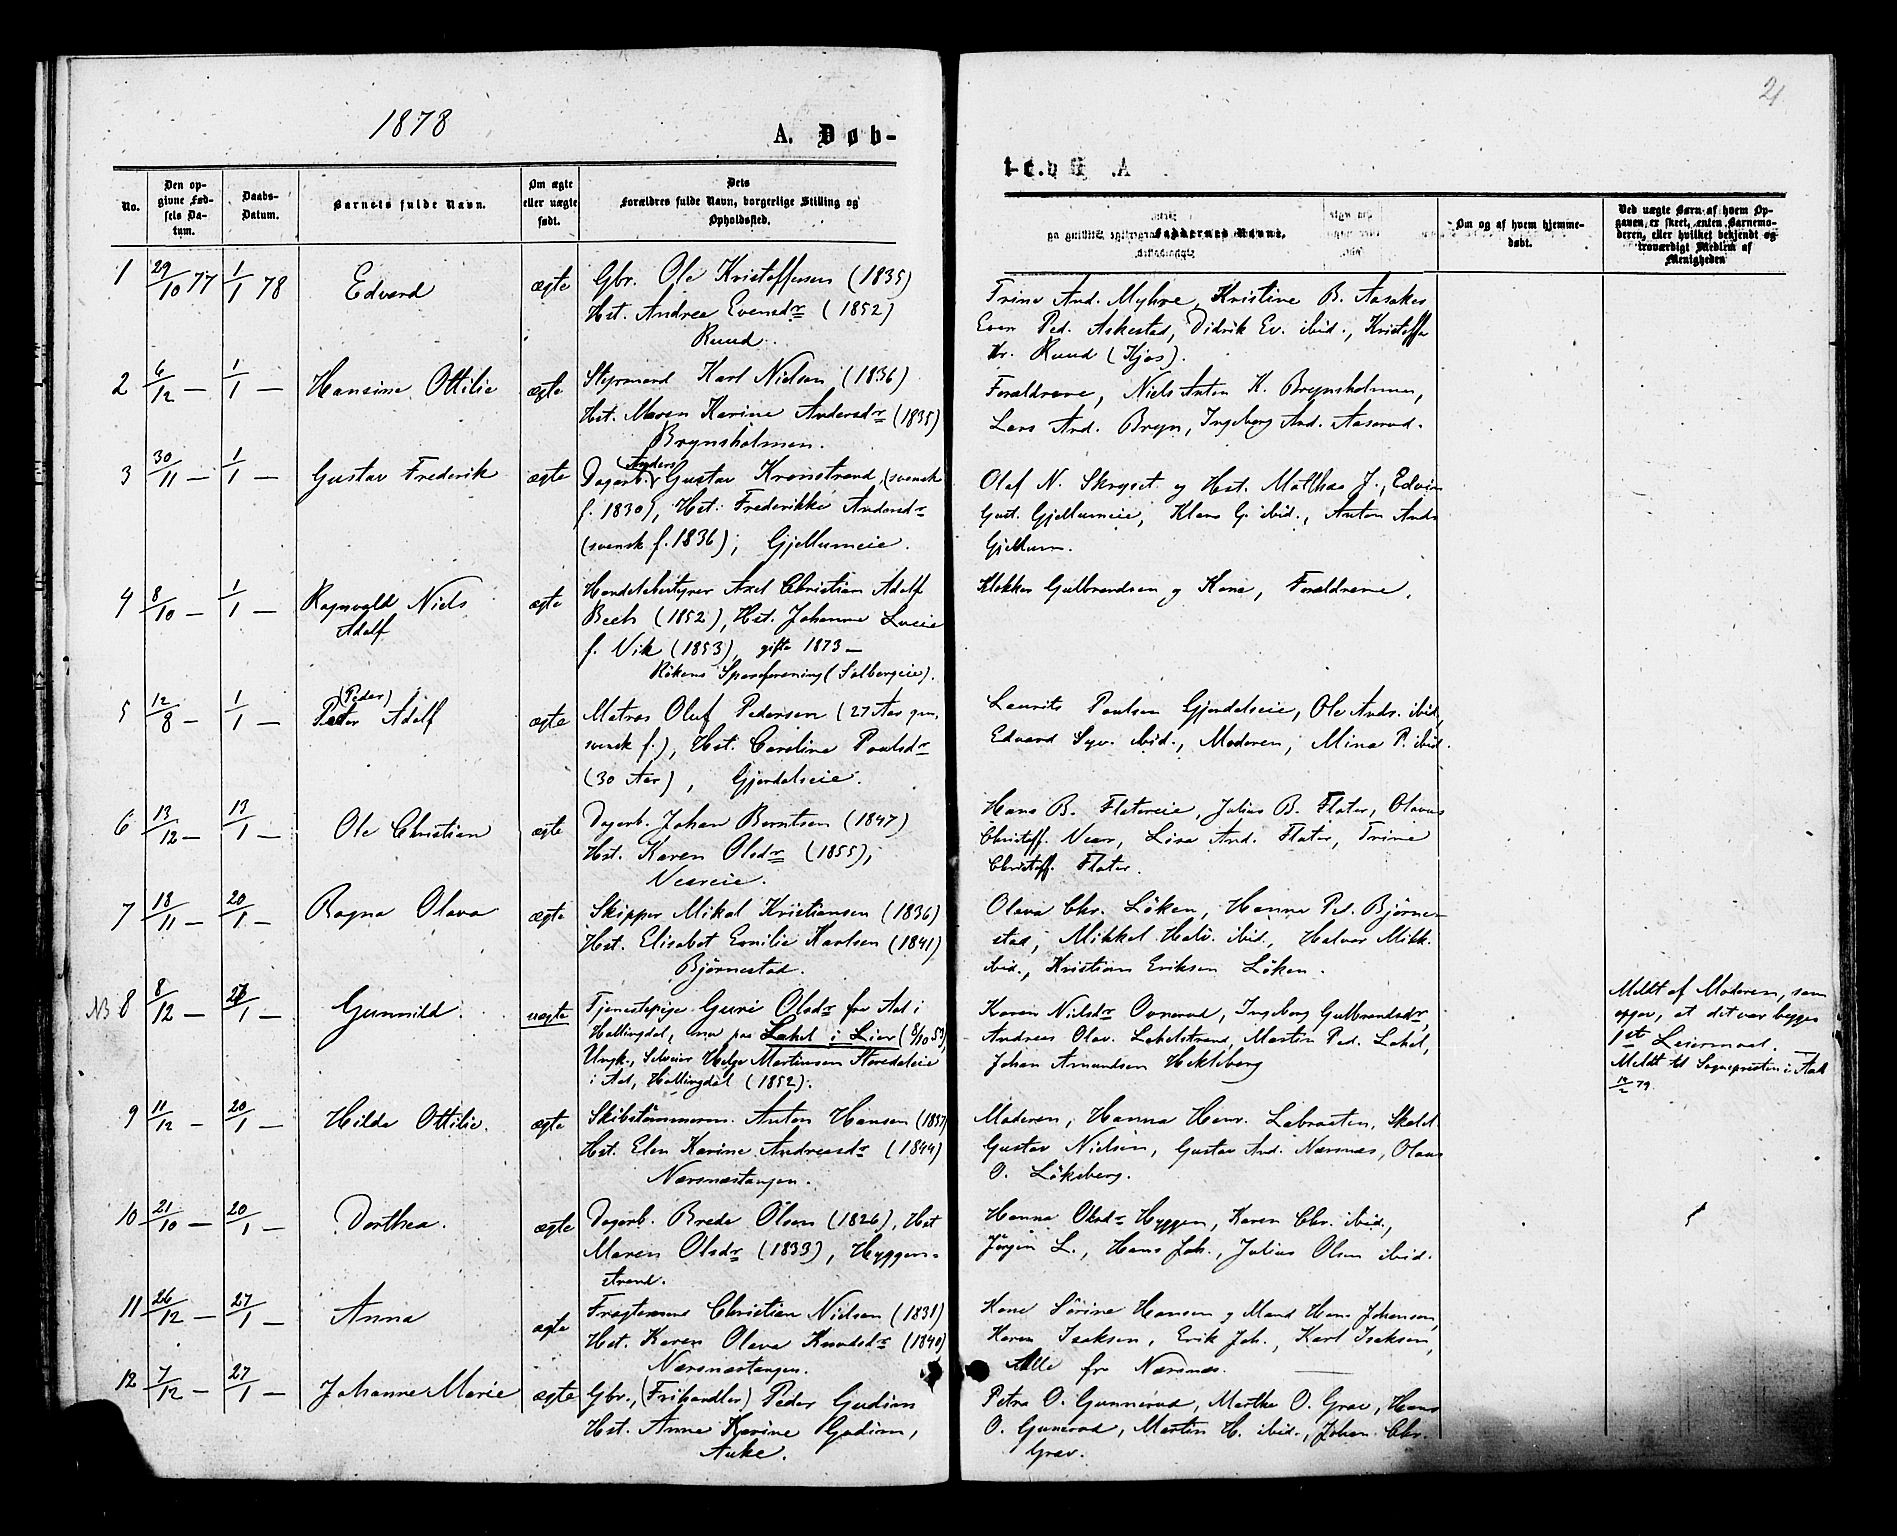 1878
A. Døb-
No.
Den op-
givne Fød-
sels Da-
tum.
Daabs-
Datum.
Barnets fulde Navn.
Om ægte
eller uægte
født.
Dets
Forældres fulde Navn, borgerlige Stilling og
Opholdssted.
1 29/10 77 1/1 78 Edvard ægte Gbr. Ole Kristoffersen (1835)
Hst. Andrea Evensdr (1852)
Ruud.
2 6/12 — 1/1 — Hansine Ottilie ægte Styrmand Karl Nielsen (1836)
Hst. Maren Karine Andersdr (1835)
Brynsholmen.
3 30/11 — 1/1 — Gustav Frederik ægte Dagarb. (Anders) Gustav Kronstrand, (svensk
f. 1830), Hst. Frederikke Andersdr
(svensk f. 1836), Gjellumeie.
4 8/10 — 1/1 — Ragnvald Niels
Adolf
ægte Handelsbestyrer Axel Christian Adolf
Bech (1852), Hst. Johanne Lucie
f. Vik (1853), gifte 1873 —
Rökens Spareforening (Solbergeie).
5 12/8 — 1/1 — (Peder)
Adolf ægte Matros Oluf Pedersen (27 Aar gm,
svensk f.), Hst. Caroline Paulsdr
(30 Aar), Gjerdalseie.
6 13/12 — 13/1 — Ole Christian ægte Dagarb. Johan Berntsen (1847)
Hst. Karen Olsdr (1855),
Næreie.
7 18/11 — 20/1 — Ragna Olava ægte Skipper Mikal Kristiansen (1836)
Hst. Elisabet Emilie Karlsen (1841)
Bjørnestad.
NB 8 8/12 — 1 — Gunnild. uægte Tjenestepige Guri Olsdr fra Aal i
Hallingdal, nu paa Lahel i Lier (8/10 53)
Ungk., Selveier Helge Martinsen Storedaleie
i Aal, Hallingdal (1852).
9 11/12 — 20/1 — Hilda Ottilie. ægte Skibstömmerm. Anton Hansen (1837)
Hst. Elen Karine Andreasdr (1844)
Nærsnæstangen.
10 21/10 — 20/1 — Dorthea. ægte Dagarb. Brede Olsen (1826), Hst
Maren Olsdr (1833), Hyggen-
strand.
11 26/12 — 27/1 — Anna ægte Fragtemand Christian Nielsen (1831)
Hst. Karen Olava Knudsdr (1840)
Nærsnæstangen.
12 7/12 — 27/1 — Johanne Marie ægte Gbr., (Frihandler) Peder Gudim
Hst. Anne Karine Gudim,
Auke.
21
Faddernes Navne.
Om og af hvem hjemme-
døbt.
Ved uægte Børn af hvem Op-
gaven er skeet, enten Barnemo-
deren, eller hvilket bekjendt og
troværdigt Medlem af
Menigheden
Trine And. Myhre, Kristine B. Aasaker
Even Ped. Askestad, Didrik Ev. ibid., Kristoffe
Kr. Ruud (Kjos).
Forældrene, Niels Anton K. Brynsholmen,
Lars And. Bryn, Ingeborg And. Aaserud.
Olaf N. Skryset og Hst. Mathea J., Edvin
Gust. Gjellumeie, Klara G. ibid., Anton Ands
Gjellum.
Klokker Gulbrandsen og Kone, Forældrene.
Laurits Paulsen Gjerdalseie, Ole Ands. ibid.,
Edvard Syv. ibid., Moderen, Mina P. ibid.
Hans B. Flatereie, Julius B. Flater, Olavus
Christoff. Nær, Lisa And. Flater, Trine
Christoff. Flater.
Olava Chr. Löken, Hanna Ped. Bjørne-
stad, Mikkel Halv. ibid., Halvor Mikk.
ibid., Kristian Eriksen Löken.
Karen Nielsdr Ovnerud, Ingeborg Gulbrandsdr,
Andreas Olav. Lahelstrand, Martin Ped. Lahel,
Johan Amundsen Heklsberg
Meldt af Moderen, som
opgav, at det var begges
1st Leiermaal.
Meldt til Sognepresten i Aal
79.
Moderen, Hanna Henr. Labraaten, Skold.
Gustav Nielsen, Gustav And. Nærsnæs, Olaus
O. Löksberg.
Hanna Olsdr Hyggen, Karen Chr. ibid.,
Jörgen L., Hans Joh., Julius Olsen ibid.
Kone Sörine Hansen og Mand Hans Johansen,
Karen Isaksen, Erik Joh., Karl Isaksen,
Alle fra Nærsnæs.
Petra O. Gunnerud, Marthe O. Grav, Hans
O. Gunerud, Martin H. ibid., Johan Chr.
Grav.